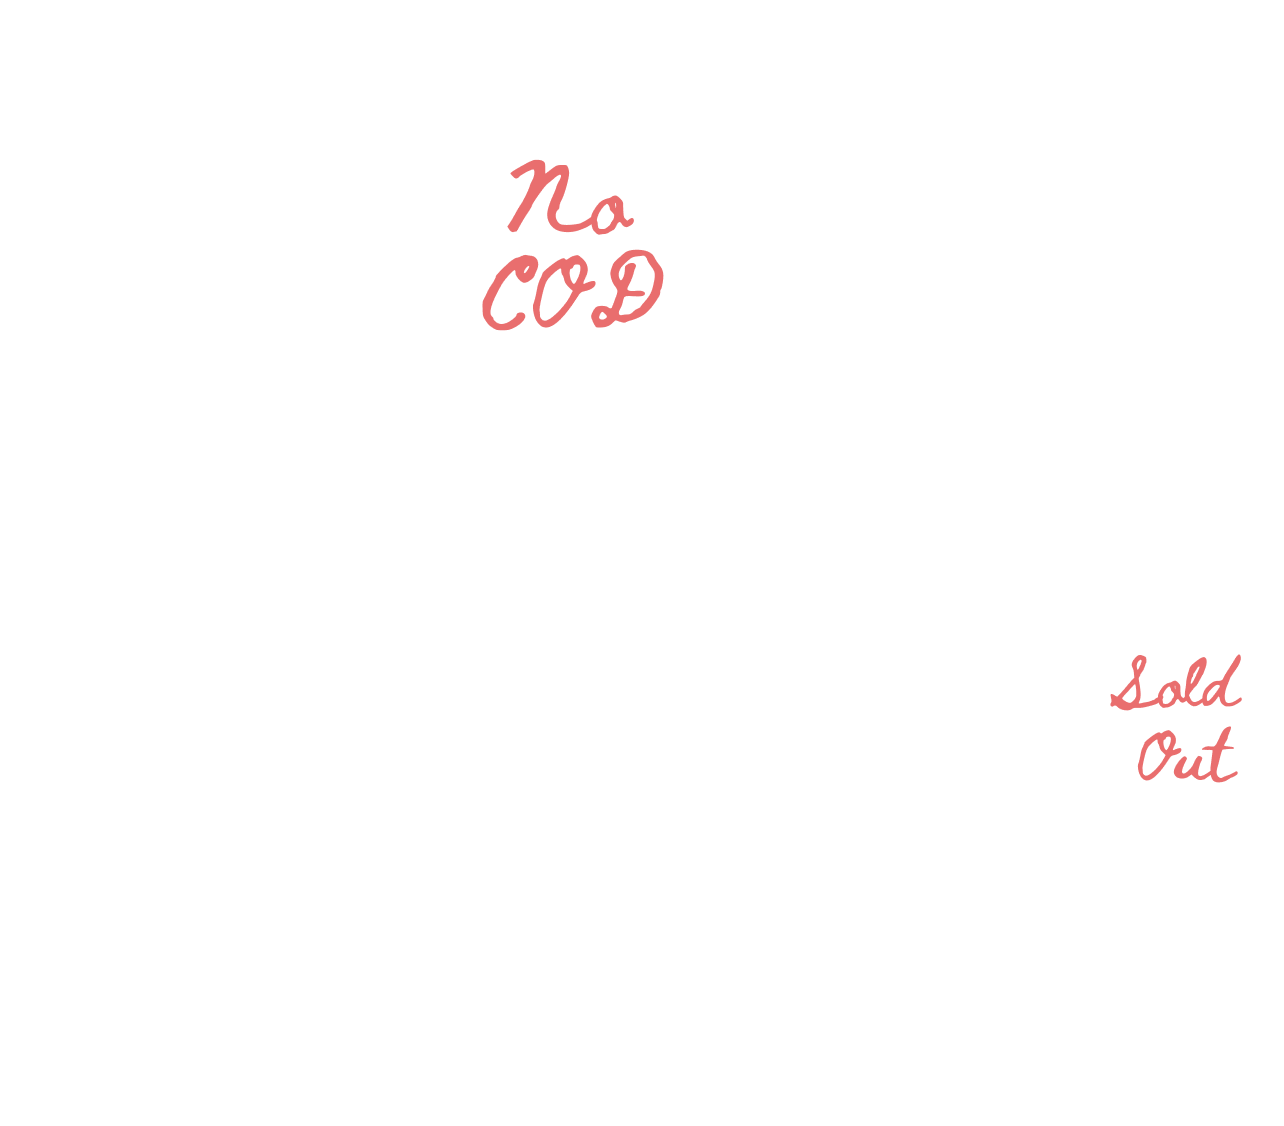 No
COD
Sold
Out